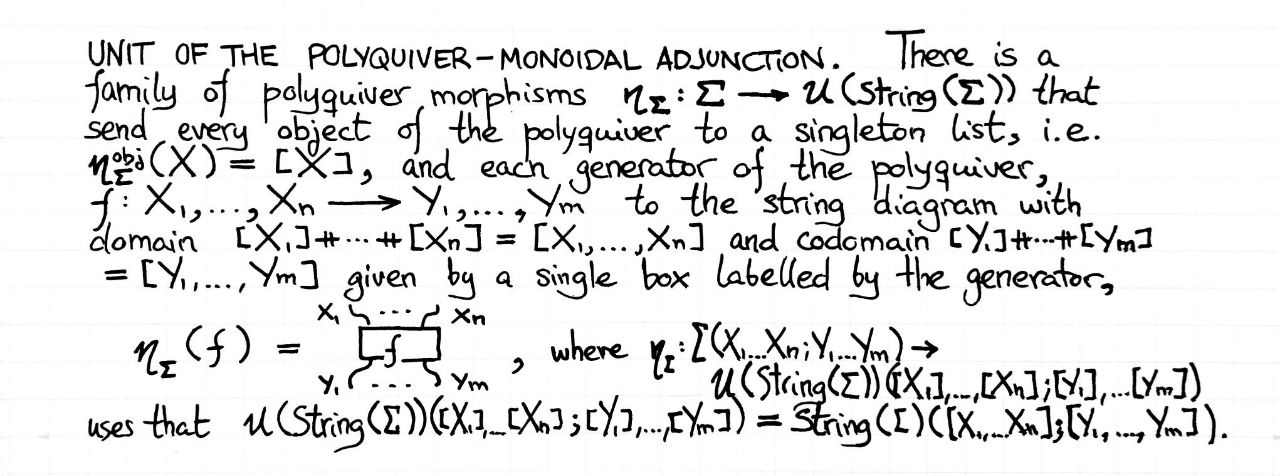 UNIT OF THE POLYQUIVER-MONOIDAL ADJUNCTION. There is a
family of polyquiver morphisms η_Σ : Σ ⟶ U(String(Σ)) that
send every object of the polyquiver to a singleton list, i.e.
η_Σ^obj(X) = [X], and each generator of the polyquiver,
f: X₁,...,Xₙ ⟶ Y₁,...,Yₘ to the string diagram with
domain [X₁]⧺···⧺[Xₙ] = [X₁,...,Xₙ] and codomain [Y₁]⧺···⧺[Yₘ]
= [Y₁,..., Yₘ] given by a single box labelled by the generator,
X₁ ... Xₙ
η_Σ(f) = f , where η_Σ: Σ(X₁...Xₙ;Y₁...Yₘ) →
Y₁ ... Yₘ
U(String(Σ))([X₁],...,[Xₙ];[Y₁],...[Yₘ])
uses that U(String(Σ))([X₁],...[Xₙ];[Y₁],...,[Yₘ]) = String(Σ)([X₁,...Xₙ];[Y₁,...,Yₘ]).